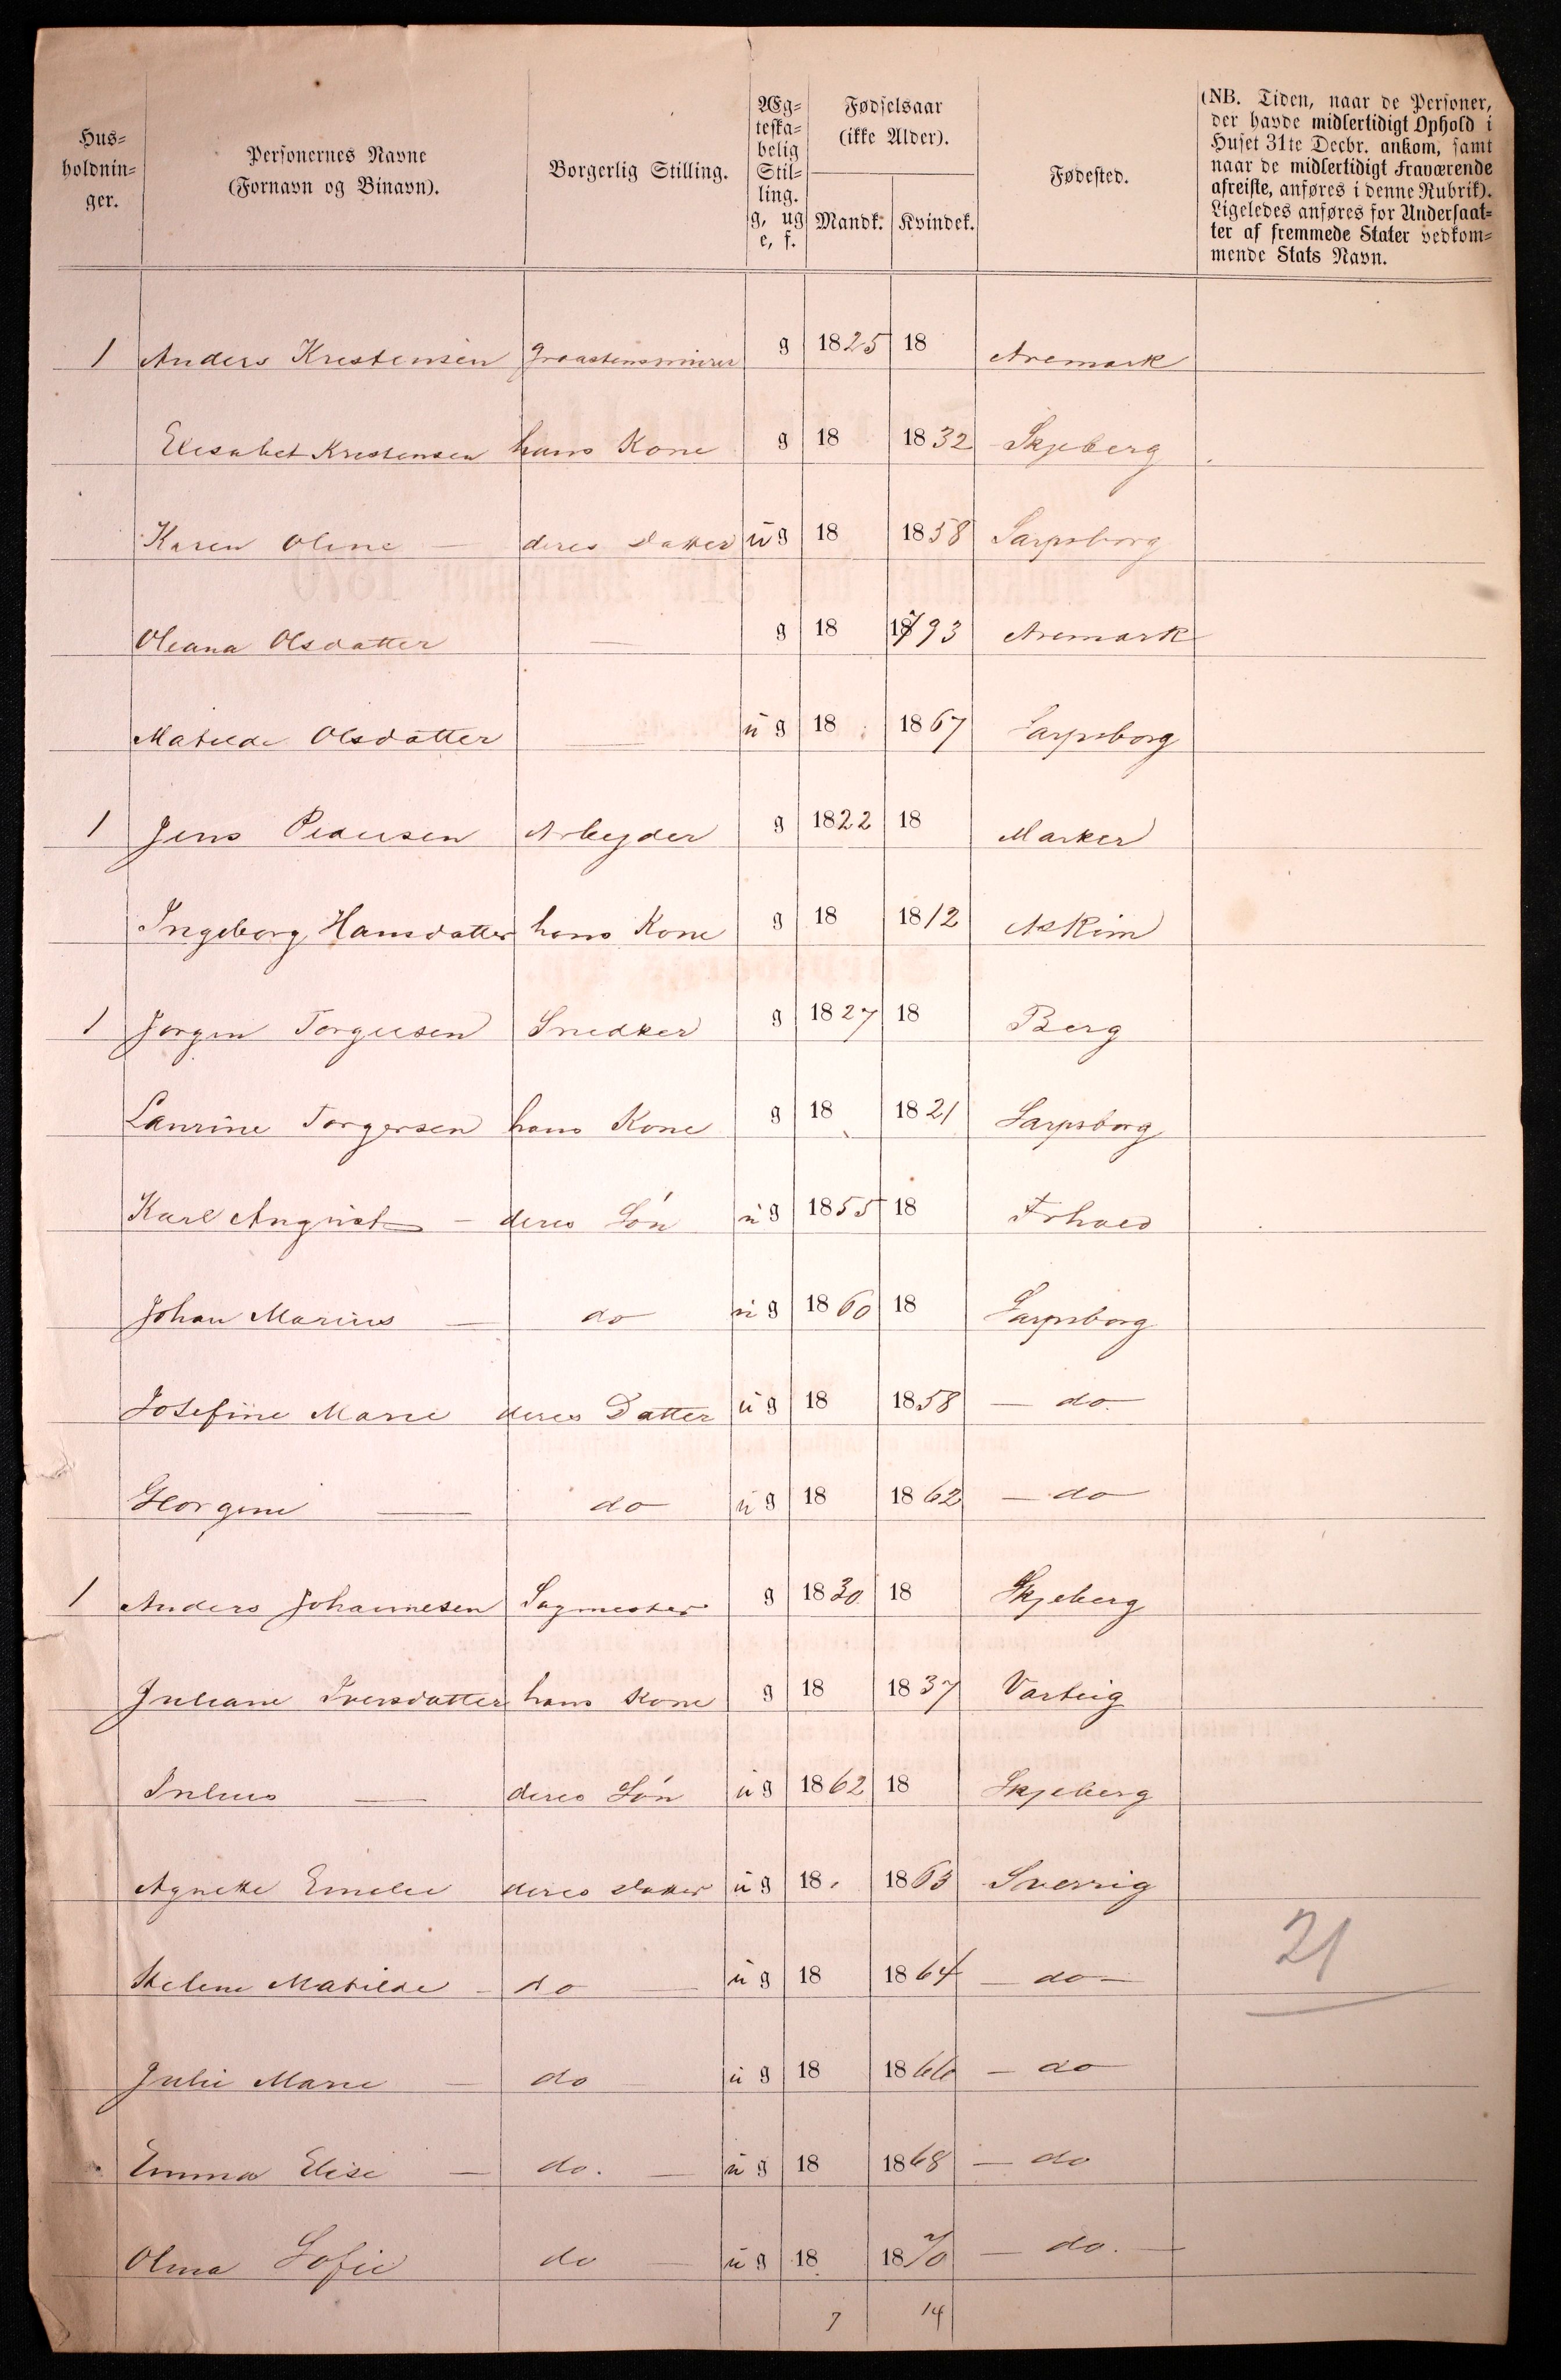 Hus-
holdnin-
ger.
Personernes Navne
(Fornavn og Binavn).
Borgerlig Stilling.
Æg-
teska-
belig
Stil-
ling.
g, ug
e, f.
Fødselsaar
(ikke Alder).
Mandk.
Kvindek.
Fødested.
(NB. Tiden, naar de Personer,
der havde midlertidigt Ophold i
Huset 31te Decbr. ankom, samt
naar de midlertidigt fraværende
afreiste, anføres i denne Rubrik).
Ligeledes anføres for Undersaat-
ter af fremmede Stater vedkom-
mende Stats Navn.
1 Anders Krestensen Graastensmurer g 1825 18 Aremark
Elesabet Krestensen hans Kone g 18 1832 Skjeberg
Karen Oline — deres Datter ug 18 1858 Sarpsborg
Oleana Olsdatter — g 18 1793 Aremark
Matilde Olsdatter — ug 18 1867 Sarpsborg
1 Jens Pedersen Arbeyder g 1822 18 Marker
Ingeborg Hansdatter hans Kone g 18 1812 Askim
1 Jorgen Torgersen Snedker g 1827 18 Berg
Laurine Torgersen hans Kone g 18 1821 Sarpsborg
Karl August — deres Són ug 1855 18
Johan Marius — do ug 1860 18 Sarpsborg
Josefine Marie deres Datter ug 18 1858 — do
Georgine — do ug 18 1862 — do
1 Anders Johannesen Sagmester g 1830 18 Skjeberg
Juliane Iversdatter hans Kone g 18 1837 Varteig
Julius — deres Són ug 1862 18 Skjeberg
Agnette Emelie deres Datter ug 18 1863 Sverrig
Helene Matilde — do — ug 18 1864 — do —
21
Julie Marie — do ug 18 1866 — do
Emma Elise — do. — ug 18 1868 — do
Olina Sofie do — ug 18 1870 — do. —
7 14